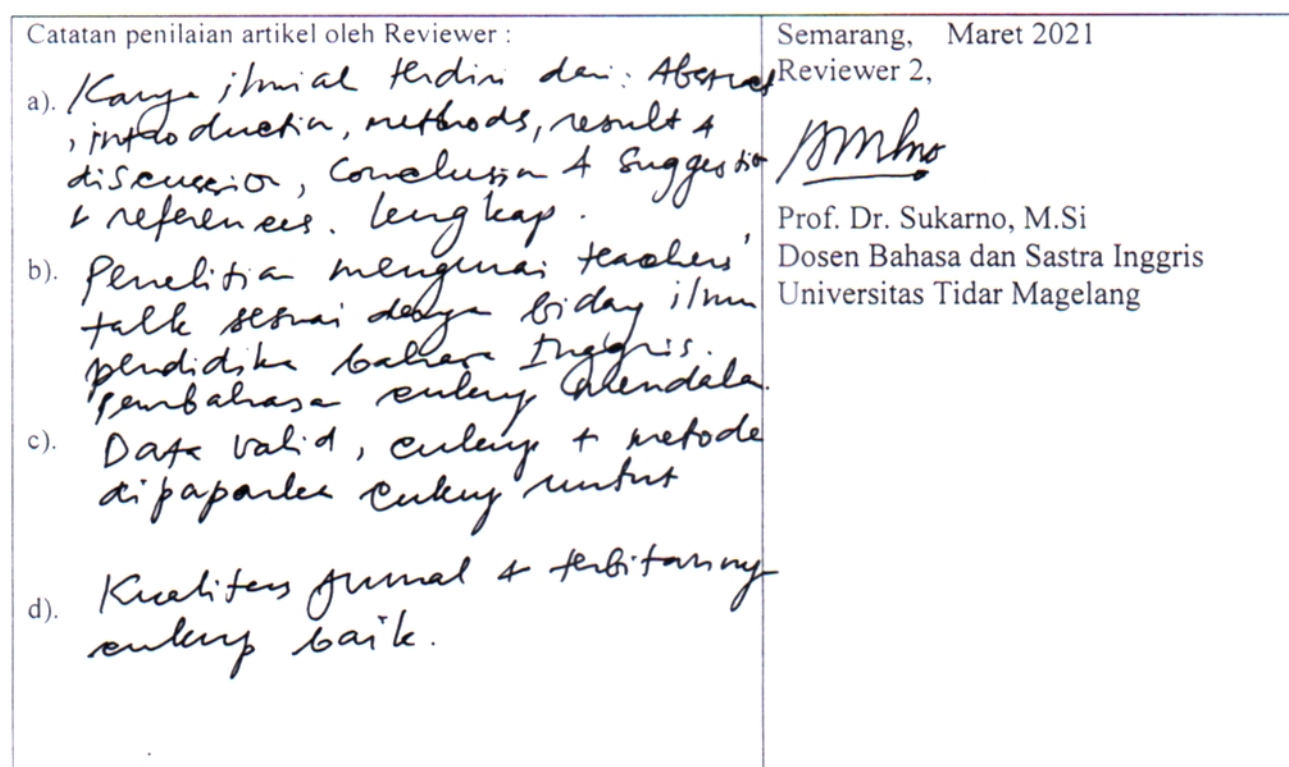 Catatan penilaian artikel oleh Reviewer :
a). Karya ilmiah terdiri dari : Abstract
, introduction, methods, result &
discussion, Conclusion & Suggestion
& references. lengkap.
b). Penelitian mengenai teachers'
talk sesuai dengan bidang ilmu
pendidikan bahasa Inggris.
pembahasan cukup mendalam.
c). Data valid, cukup & metode
dipaparkan cukup runtut
d). Kualitas jurnal & terbitannya
cukup baik.
Semarang, Maret 2021
Reviewer 2,
Prof. Dr. Sukarno, M.Si
Dosen Bahasa dan Sastra Inggris
Universitas Tidar Magelang